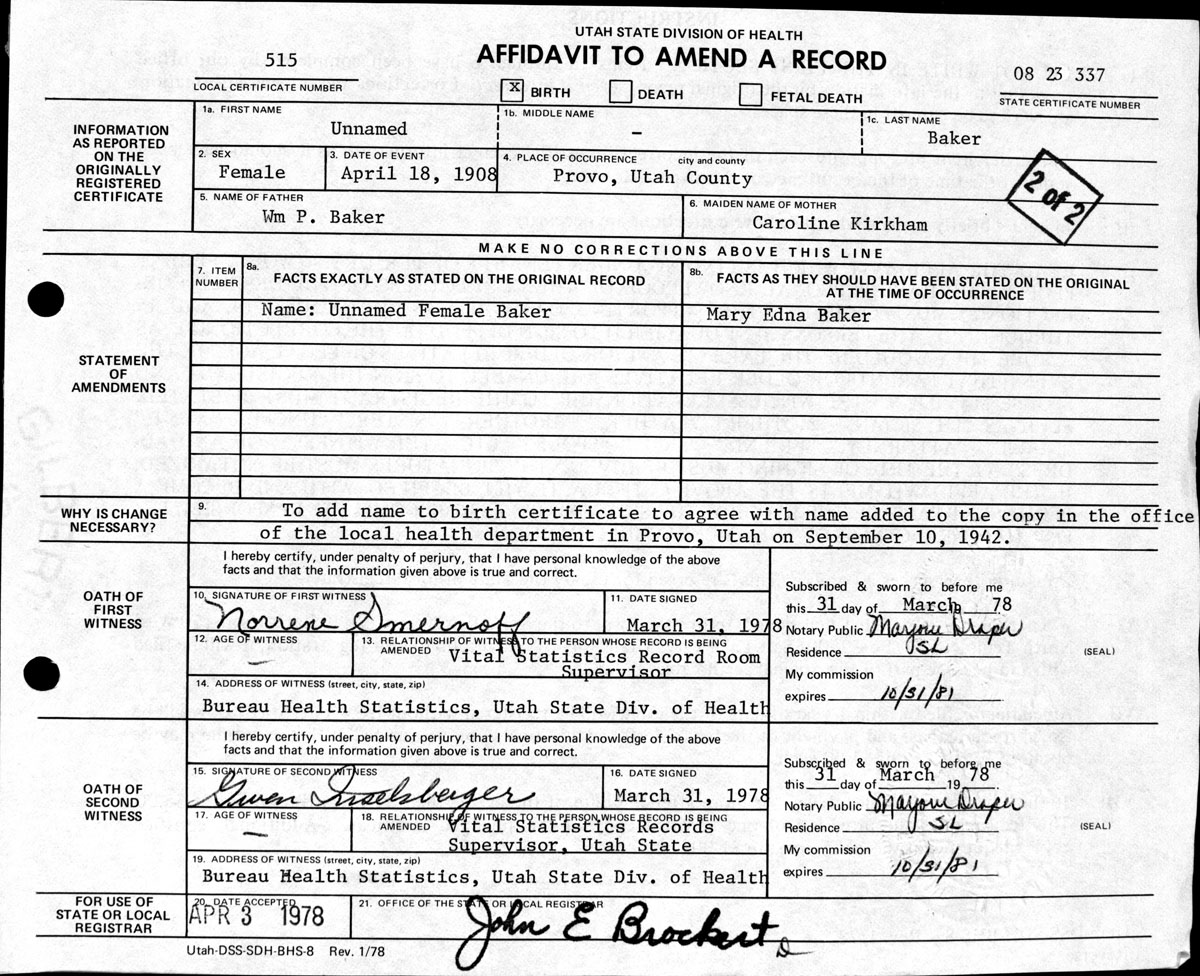 UTAH STATE DIVISION OF HEALTH
AFFIDAVIT TO AMEND A RECORD
515
LOCAL CERTIFICATE NUMBER
X BIRTH DEATH FETAL DEATH
08 23 337
STATE CERTIFICATE NUMBER
INFORMATION
AS REPORTED
ON THE
ORIGINALLY
REGISTERED
CERTIFICATE
1a. FIRST NAME
Unnamed
1b. MIDDLE NAME
-
1c. LAST NAME
Baker
2. SEX
Female
3. DATE OF EVENT
April 18, 1908
4. PLACE OF OCCURRENCE city and county
Provo, Utah County
2 of 2
5. NAME OF FATHER
Wm P. Baker
6. MAIDEN NAME OF MOTHER
Caroline Kirkham
MAKE NO CORRECTIONS ABOVE THIS LINE
STATEMENT
OF
AMENDMENTS
7. ITEM
NUMBER
8a.
FACTS EXACTLY AS STATED ON THE ORIGINAL RECORD
8b.
FACTS AS THEY SHOULD HAVE BEEN STATED ON THE ORIGINAL
AT THE TIME OF OCCURRENCE
Name: Unnamed Female Baker
Mary Edna Baker
WHY IS CHANGE
NECESSARY?
9. To add name to birth certificate to agree with name added to the copy in the office
of the local health department in Provo, Utah on September 10, 1942.
OATH OF
FIRST
WITNESS
I hereby certify, under penalty of perjury, that I have personal knowledge of the above
facts and that the information given above is true and correct.
10. SIGNATURE OF FIRST WITNESS
Norrene Smernoff
11. DATE SIGNED
March 31, 1978
12. AGE OF WITNESS
—
13. RELATIONSHIP OF WITNESS TO THE PERSON WHOSE RECORD IS BEING
AMENDED
Vital Statistics Record Room
Supervisor
14. ADDRESS OF WITNESS (street, city, state, zip)
Bureau Health Statistics, Utah State Div. of Health
Subscribed & sworn to before me
this 31 day of March 78
Notary Public Marjorie Draper
Residence SL
(SEAL)
My commission
expires 10/31/81
OATH OF
SECOND
WITNESS
I hereby certify, under penalty of perjury, that I have personal knowledge of the above
facts and that the information given above is true and correct.
15. SIGNATURE OF SECOND WITNESS
Gwen Inselsberger
16. DATE SIGNED
March 31, 1978
17. AGE OF WITNESS
—
18. RELATIONSHIP OF WITNESS TO THE PERSON WHOSE RECORD IS BEING
AMENDED
Vital Statistics Records
Supervisor, Utah State
19. ADDRESS OF WITNESS (street, city, state, zip)
Bureau Health Statistics, Utah State Div. of Health
Subscribed & sworn to before me
this 31 day of March 1978
Notary Public Marjorie Draper
Residence SL
(SEAL)
My commission
expires 10/31/81
FOR USE OF
STATE OR LOCAL
REGISTRAR
20. DATE ACCEPTED
APR 3 1978
21. OFFICE OF THE STATE OR LOCAL REGISTRAR
John E Brockert
Utah-DSS-SDH-BHS-8 Rev. 1/78